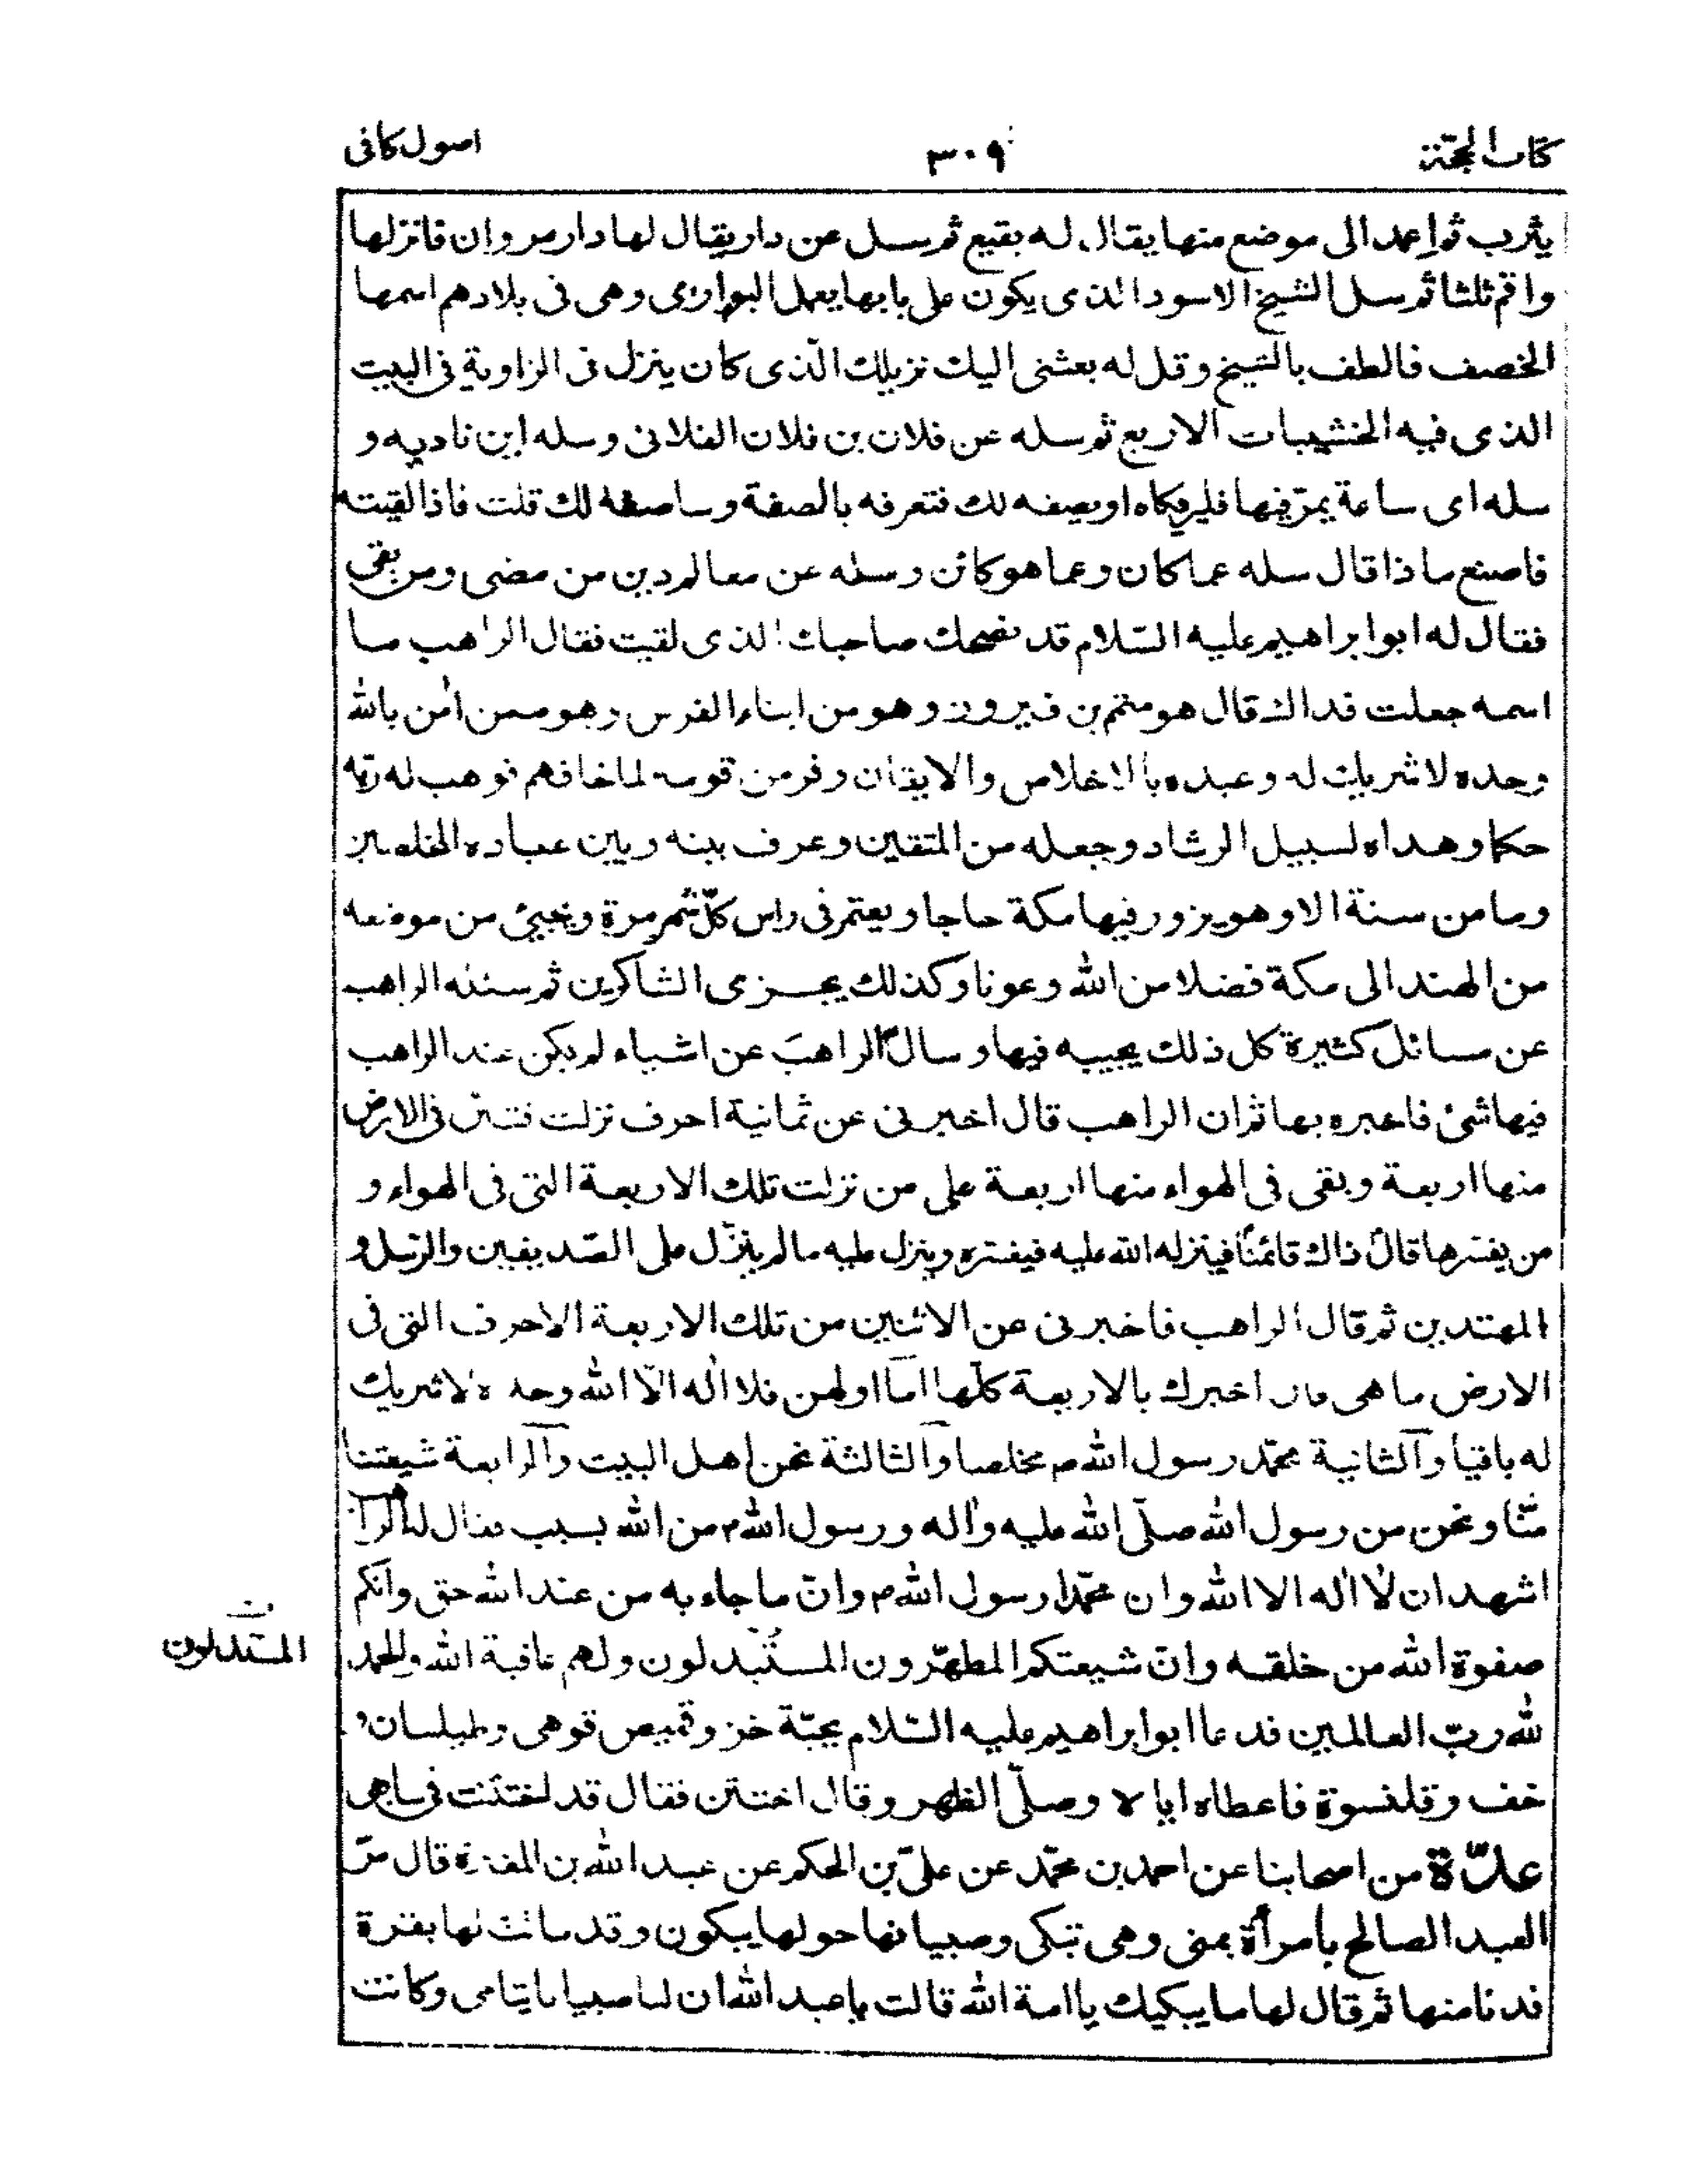 كتاب الحجة
٣٠٩
اصول كافى
يثرب ثم اعمد الى موضع منها يقال له بقيع ثم سل عن دار يقال لها دار مروان فانزلها
واقم ثلثا ثم سل الشيخ الاسود الذى يكون على بابها يعمل البوارى وهى فى بلادهم اسمها
الخصف فالطف بالشيخ وقل له بعثنى اليك نزيلك الّذى كان ينزل فى الزاوية فى البيت
الذى فيه الخشيبات الاربع ثم سله عن فلان بن فلان الفلانى وسله اين ناديه و
سله اى ساعة يمرّ فيها فليريكاه او يصفه لك فتعرفه بالصفة وساصفه لك قلت فاذا لقيته
فاصنع ماذا قال سله عما كان وعما هو كائن وسله عن معالم دين من مضى ومن بقى
فقال له ابو ابراهيم عليه السّلام قد نصحك صاحبك الذى لقيت فقال الراهب ما
اسمه جعلت فداك قال هو متمم بن فيروز وهو من ابناء الفرس وهو ممن اٰمن بالله
وحده لا شريك له وعبده بالاخلاص والايقان وفر من قومه لما خافهم فوهب له ربّه
حكما وهداه لسبيل الرشاد وجعله من المتقين وعرف بينه وبين عباده المخلصين
وما من سنة الا وهو يزور فيها مكة حاجا ويعتمر فى راس كلّ شهر مرة ويجيئ من موضعه
من الهند الى مكة فضلا من الله وعونا وكذلك يجزى الشاكرين ثم سئله الراهب
عن مسائل كثيرة كل ذلك يجيبه فيها وسال الراهبَ عن اشياء لم يكن عند الراهب
فيها شئ فاخبره بها ثم ان الراهب قال اخبرنى عن ثمانية احرف نزلت فتبيّن فى الارض
منها اربعة وبقى فى الهواء منها اربعة على من نزلت تلك الاربعة التى فى الهواء و
من يفسرها قال ذاك قائمنا فينزله الله عليه فيفسره وينزل عليه ما لم ينزّل على الصّديقين والرّسل و
المهتدين ثم قال الراهب فاخبرنى عن الاثنين من تلك الاربعة الاحرف التى فى
الارض ما هى قال اخبرك بالاربعة كلّها امّا اولهن فلا اله الّا الله وحده لا شريك
له باقيا والثانية محمّد رسول الله ص مخلصا والثالثة نحن اهل البيت والرابعة شيعتنا
منّا ونحن من رسول الله صلّى الله عليه واٰله ورسول الله ص من الله بسبب فقال له الراهب
اشهد ان لا اله الا الله وان محمّدا رسول الله ص وانّ ما جاء به من عند الله حق وانّكم
صفوة الله من خلقه وانّ شيعتكم المطهّرون المستبدلون ولهم عاقبة الله والحمد
لله ربّ العالمين فدعا ابو ابراهيم عليه السّلام بجبّة خز وقميص قوهى وطيلسان و
خف وقلنسوة فاعطاه اياه وصلّى الظهر وقال اختتن فقال قد اختتنت فى سابعى
عدّة من اصحابنا عن احمد بن محمّد عن علىّ بن الحكم عن عبد الله بن المغيرة قال مرّ
العبد الصالح بامرأة بمنى وهى تبكى وصبيانها حولها يبكون وقد ماتت لها بقرة
فدنا منها ثم قال لها ما يبكيك يا امة الله قالت يا عبد الله ان لنا صبيانا يتامى وكانت